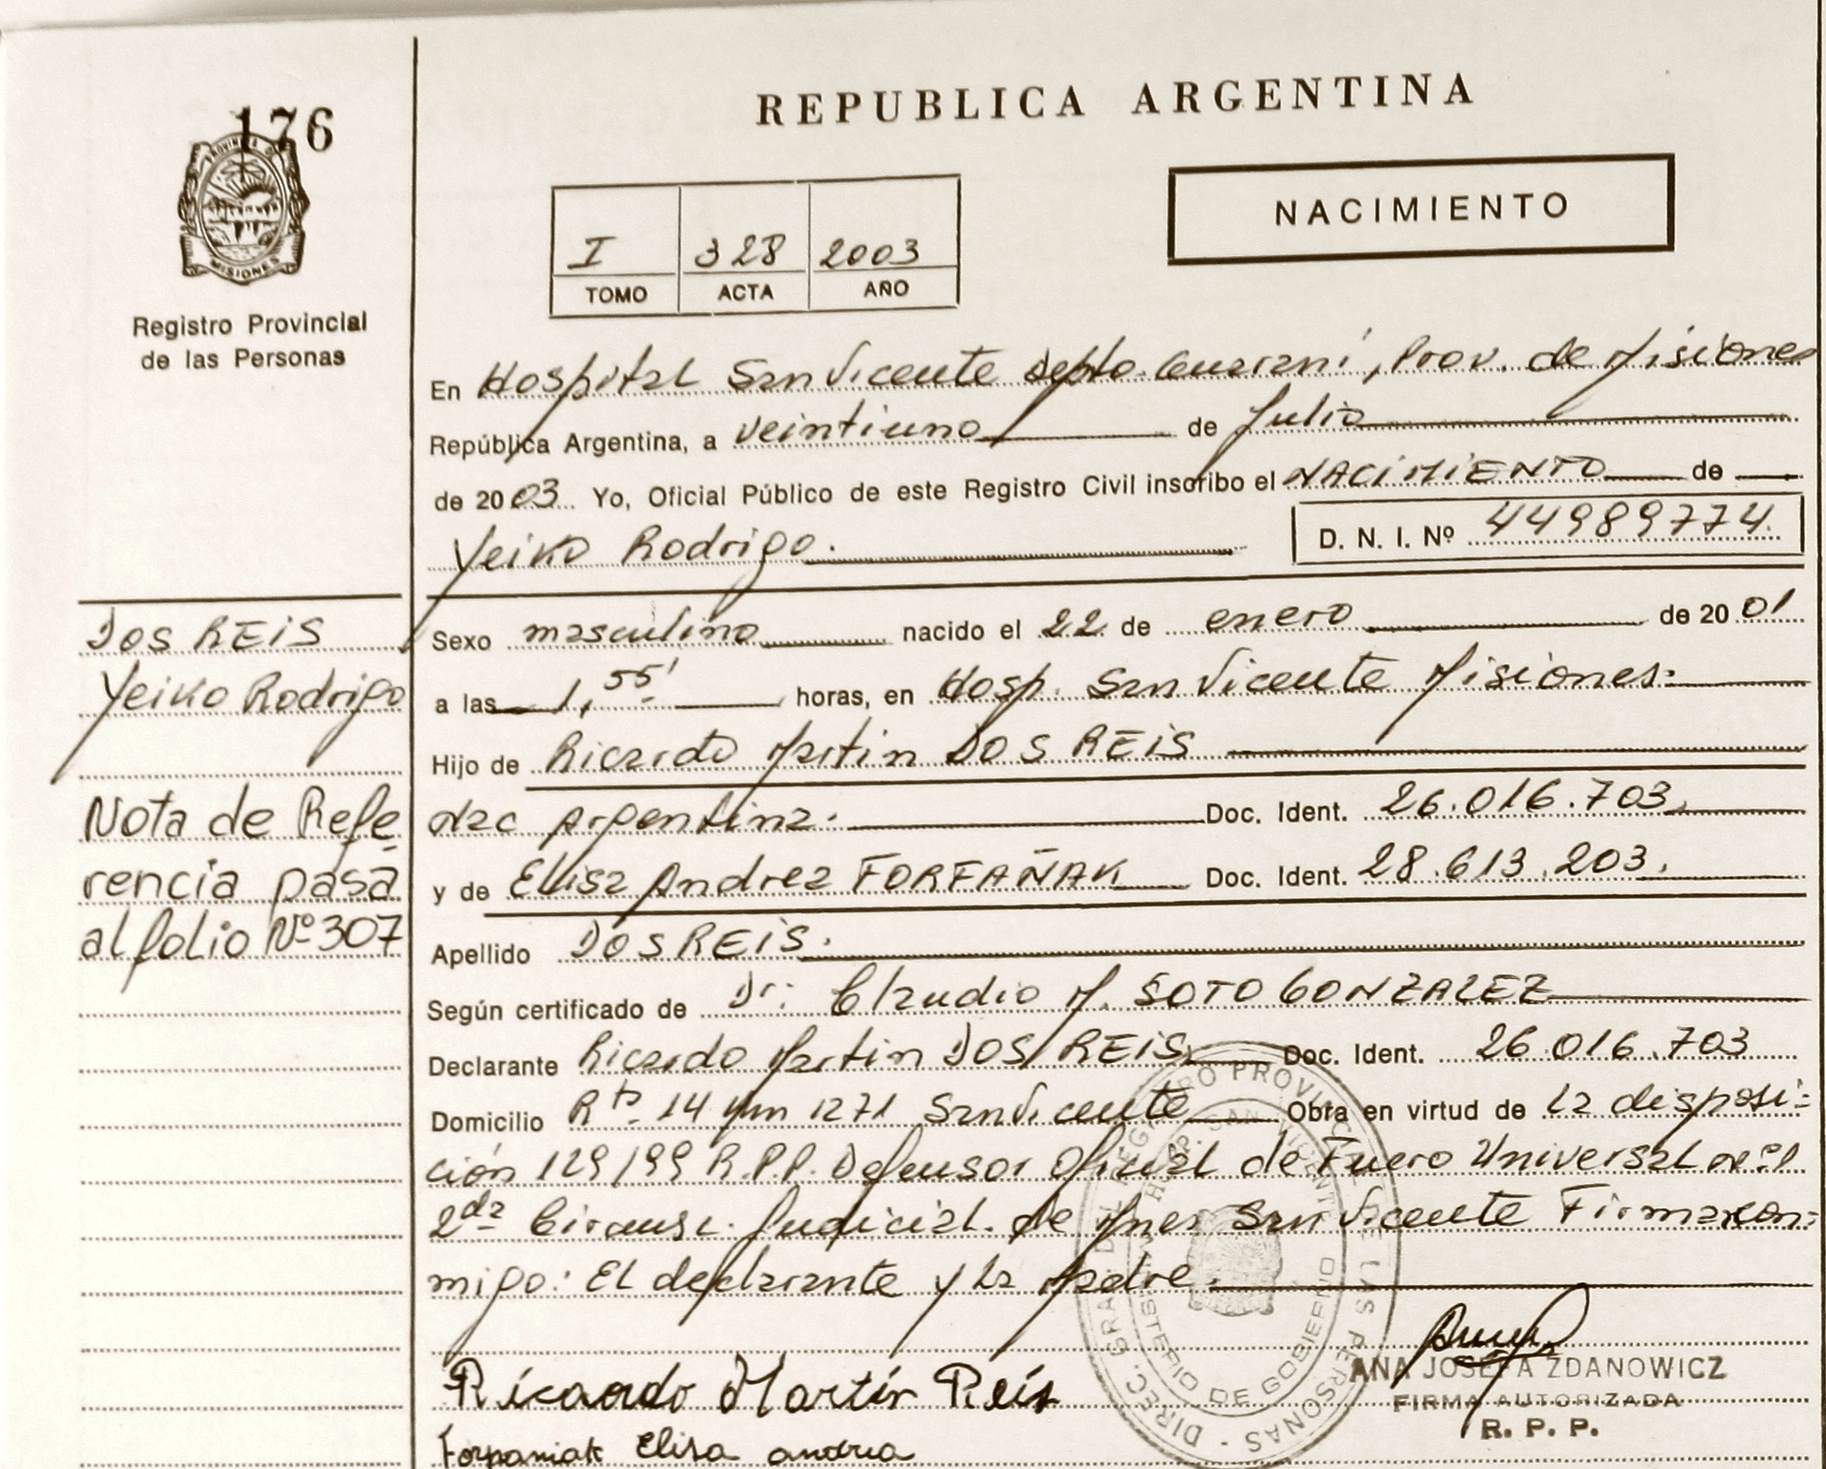 176
REPUBLICA ARGENTINA
PROVINCIA DE
MISIONES
Registro Provincial
de las Personas
I 328 2003
TOMO ACTA AÑO
NACIMIENTO
En Hospital San Vicente Depto. Guaraní, Prov. de Misiones
República Argentina, a veintiuno de Julio
de 2003 Yo, Oficial Público de este Registro Civil inscribo el NACIMIENTO de
Yeiko Rodrigo. D. N. I. Nº 44989774.
DOS REIS
Yeiko Rodrigo
Nota de Refe
rencia pasa
al folio Nº 307
Sexo masculino nacido el 22 de enero de 2001
a las 1,55' horas, en Hosp. San Vicente Misiones:
Hijo de Ricardo Martin DOS REIS
nac Argentina. Doc. Ident. 26.016.703.
y de Elisa Andrea FORFAÑAK Doc. Ident. 28.613.203.
Apellido DOS REIS.
Según certificado de Dr: Claudio M. SOTO GONZALEZ
Declarante Ricardo Martin DOS REIS Doc. Ident. 26 016.703
Domicilio Rta 14 km 1271 San Vicente Obra en virtud de la disposi-
ción 129/99 R.P.P. Defensor Oficial de Fuero Universal nº1
2da Circunsc. Judicial de Mnes San Vicente Firmaron
migo: El declarante y la Madre.
Ricardo Martin Reis
Forpaniak Elisa andrea
ANA JOSEFA ZDANOWICZ
FIRMA AUTORIZADA
R. P. P.